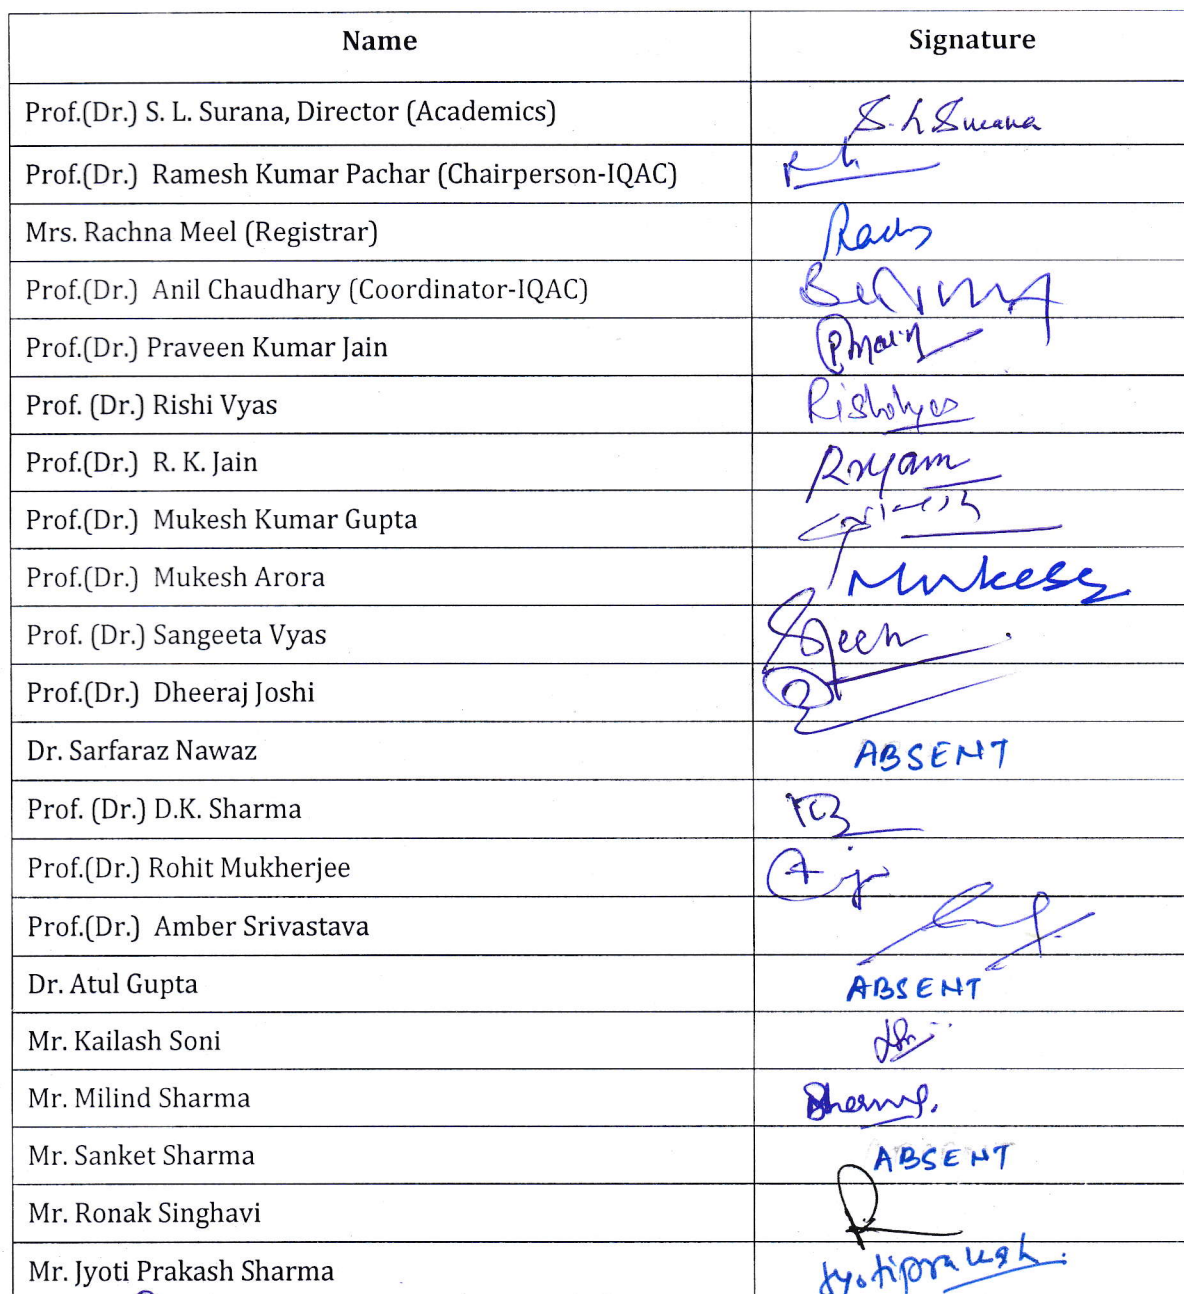 Name Signature
Prof.(Dr.) S. L. Surana, Director (Academics) S. L Surana
Prof.(Dr.) Ramesh Kumar Pachar (Chairperson-IQAC)
Mrs. Rachna Meel (Registrar)
Prof.(Dr.) Anil Chaudhary (Coordinator-IQAC)
Prof.(Dr.) Praveen Kumar Jain
Prof. (Dr.) Rishi Vyas
Prof.(Dr.) R. K. Jain
Prof.(Dr.) Mukesh Kumar Gupta
Prof.(Dr.) Mukesh Arora
Prof. (Dr.) Sangeeta Vyas
Prof.(Dr.) Dheeraj Joshi
Dr. Sarfaraz Nawaz ABSENT
Prof. (Dr.) D.K. Sharma
Prof.(Dr.) Rohit Mukherjee
Prof.(Dr.) Amber Srivastava
Dr. Atul Gupta ABSENT
Mr. Kailash Soni
Mr. Milind Sharma
Mr. Sanket Sharma ABSENT
Mr. Ronak Singhavi
Mr. Jyoti Prakash Sharma Jyotiprakash.